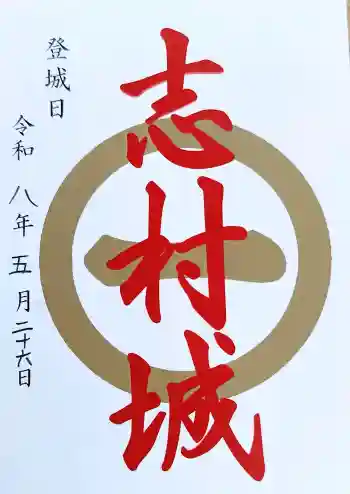 志村城
登城日
令和 八年 五月二十六日